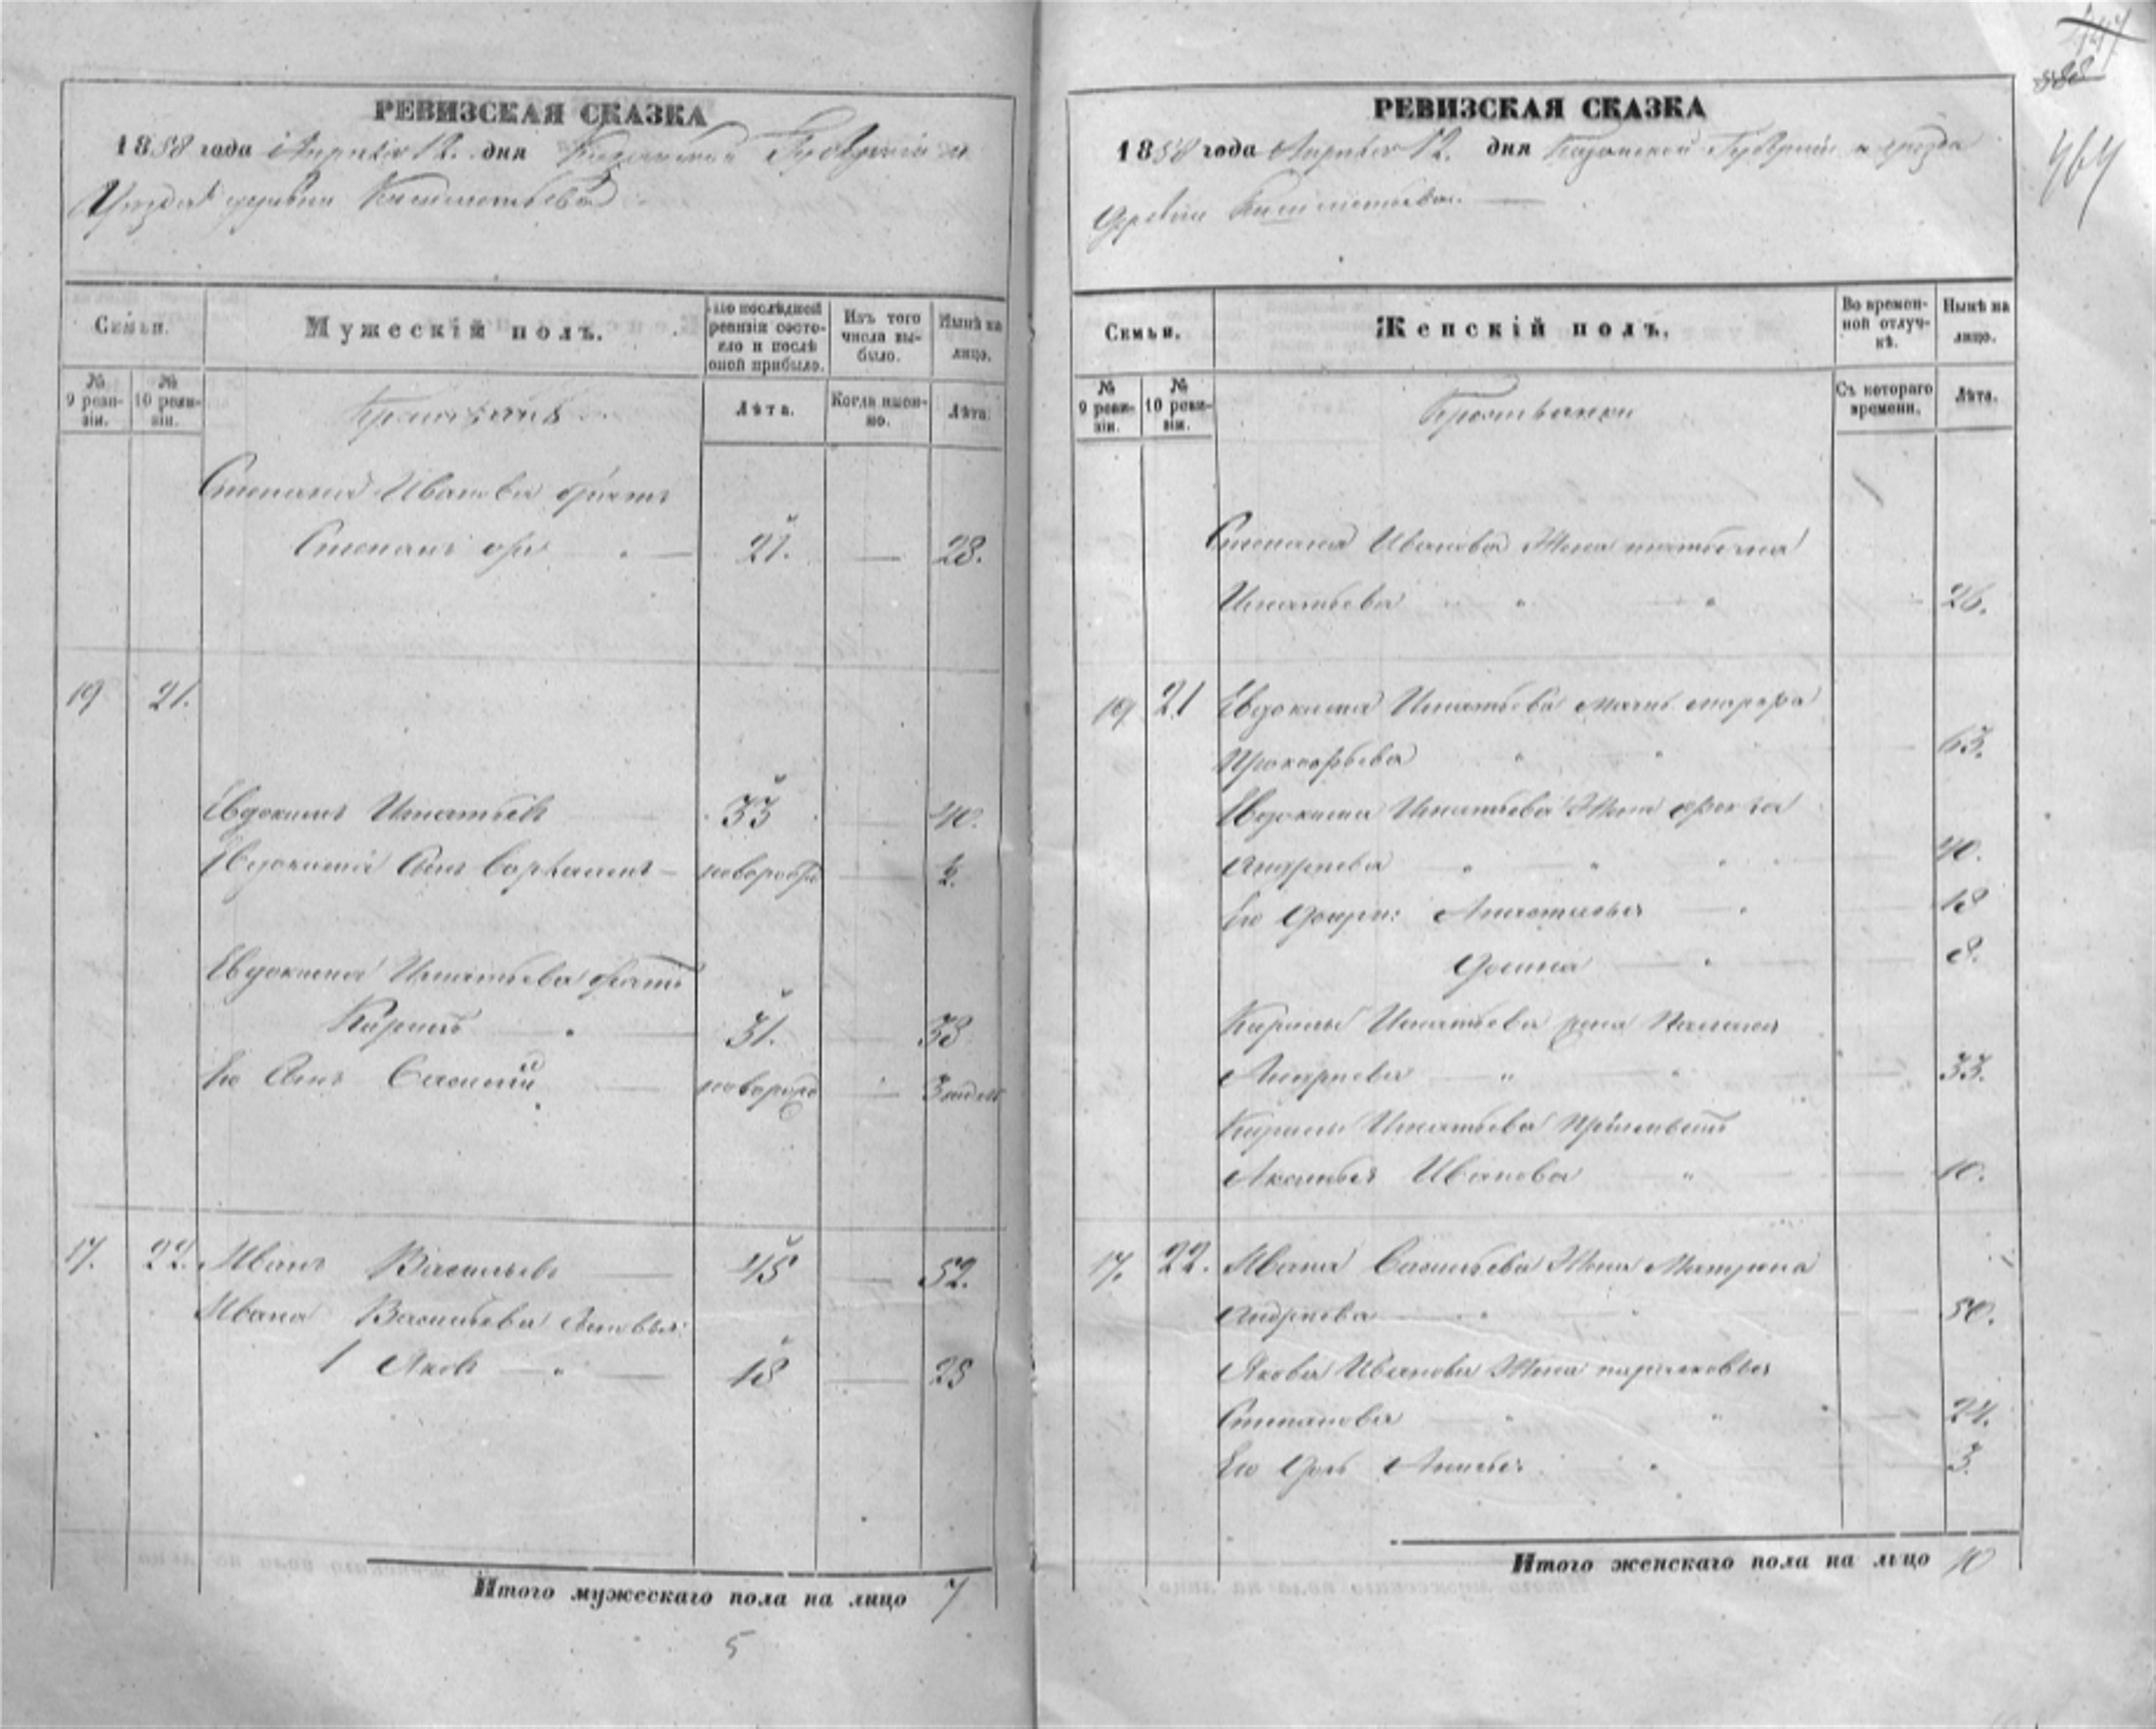 РЕВИЗСКАЯ СКАЗКА
1858 года Апреля 12. дня Казанской Губерніи и
Уезда деревни
Семьи.
Мужескій полъ.
По послѣдней ревизіи состояло и послѣ оной прибыло.
Изъ того числа выбыло.
Нынѣ на лицо.
№ 9 ревизіи.
№ 10 ревизіи.
Крестьяне
Лѣта.
Когда именно.
Лѣта.
Степана Иванова братъ
Степанъ 21. — 28.
19 21.
Евдокимъ Игнатьевъ — 33 — 40.
Евдокима Сынъ — новорожд —
Евдокима Игнатьева братъ
Кирилъ — 31. — 38
Его Сынъ Василій — новорожд — 3 недел
17. 22. Иванъ Васильевъ — 45 — 52.
Ивана Васильева Сыновья:
1 Яковъ — 18 — 25
Итого мужескаго пола на лицо 7
5
447
388
464
РЕВИЗСКАЯ СКАЗКА
1858 года Апреля 12. дня Казанской Губерніи и уезда
деревни
Семьи.
Женскій полъ.
Во временной отлучкѣ.
Нынѣ на лицо.
№ 9 ревизіи.
№ 10 ревизіи.
Крестьянки
Съ котораго времени.
Лѣта.
Степана Иванова Жена
Игнатьева — 26.
19 21 Евдокима Игнатьева мать
Прокофьева — 63.
Евдокима Игнатьева Жена
Андреева — 40.
Его Дочери: Анастасья — 18
Домна — 8.
Кирилы Игнатьева жена
Андреева — 33.
Кирилы Игнатьева
Иванова — 10.
17. 22. Ивана Васильева Жена Матрена
Андреева — 50.
Якова Иванова Жена парасковья
Степанова — 24.
Его Дочь — 3.
Итого женскаго пола на лицо 10